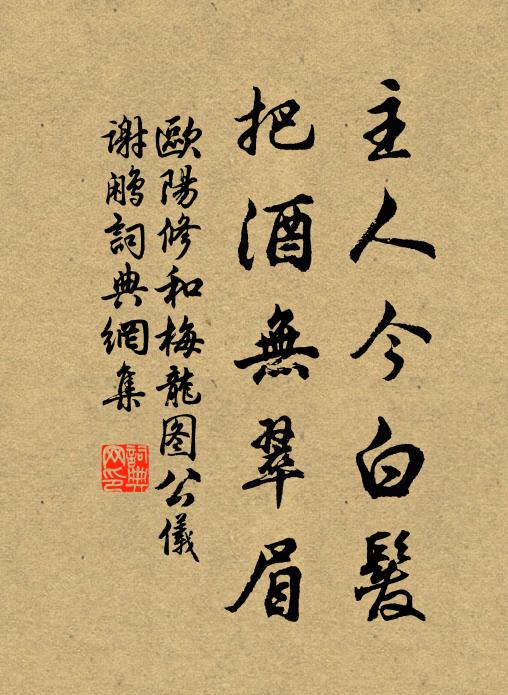 主人今白髮
把酒無翠眉
歐陽修和梅龍图公儀
謝鷴詞典網集
詞典网印